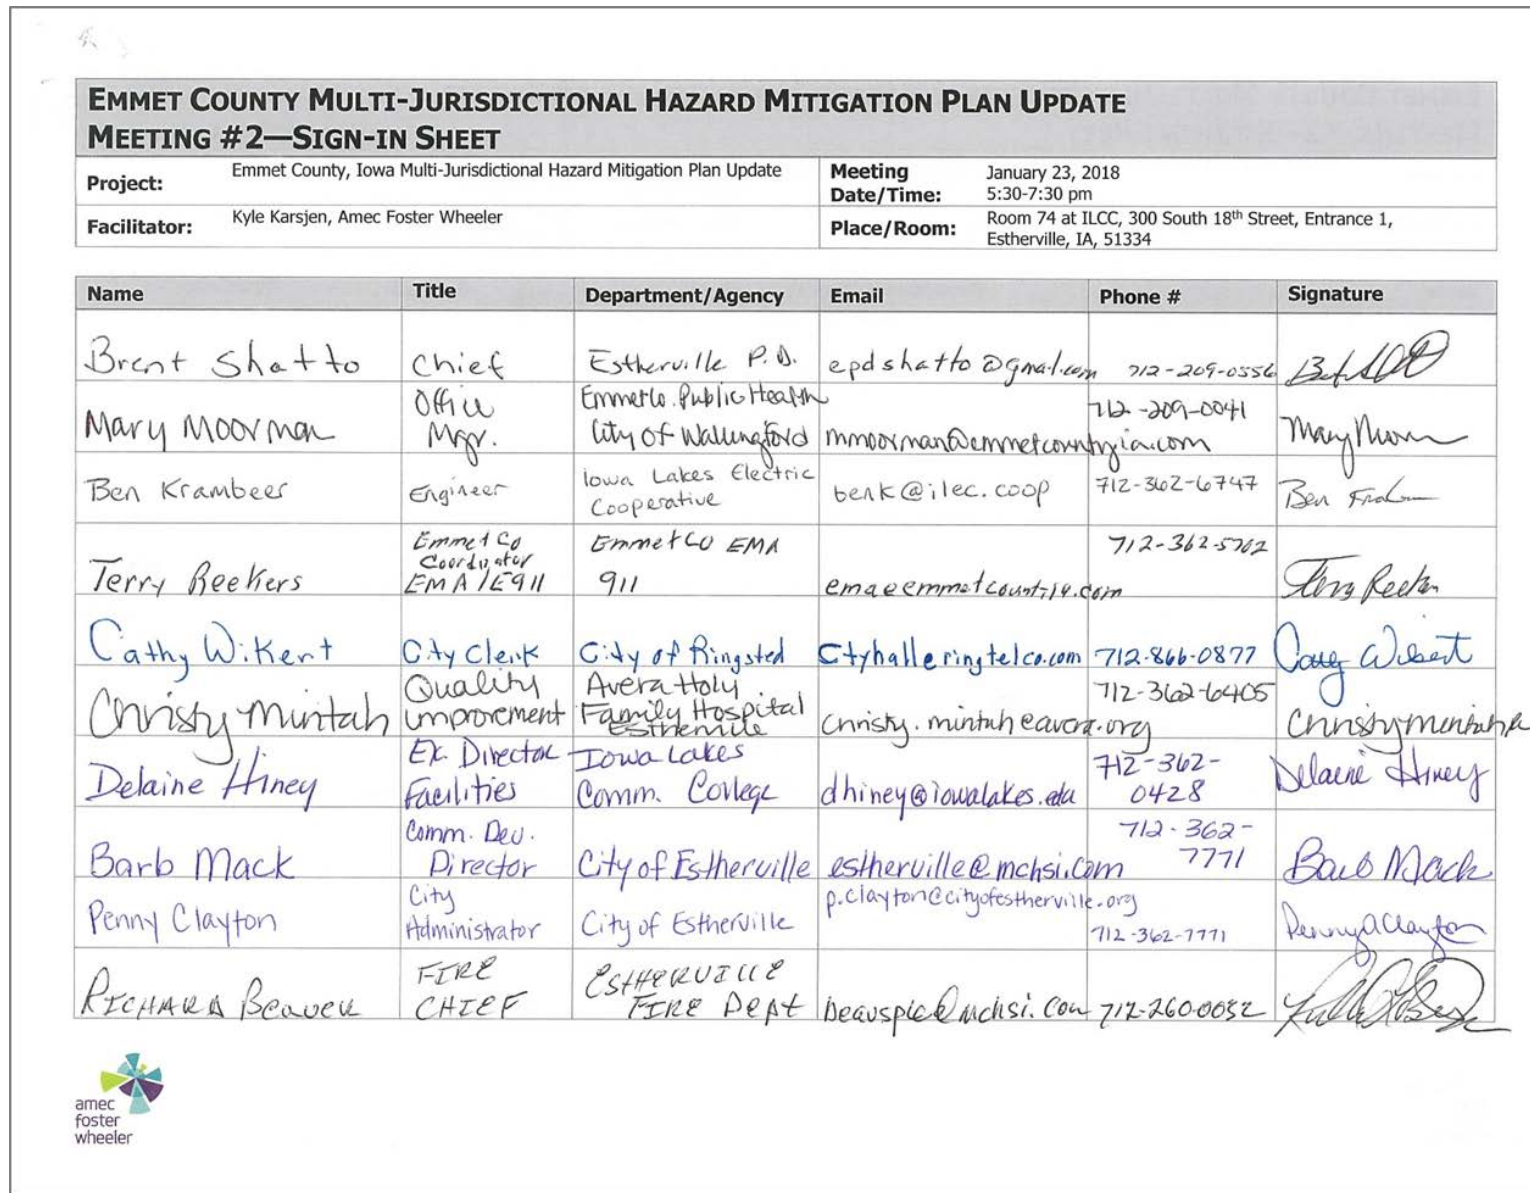 EMMET COUNTY MULTI-JURISDICTIONAL HAZARD MITIGATION PLAN UPDATE
MEETING #2—SIGN-IN SHEET
Project: Emmet County, Iowa Multi-Jurisdictional Hazard Mitigation Plan Update Meeting Date/Time: January 23, 2018
5:30-7:30 pm
Facilitator: Kyle Karsjen, Amec Foster Wheeler Place/Room: Room 74 at ILCC, 300 South 18th Street, Entrance 1,
Estherville, IA, 51334
Name Title Department/Agency Email Phone # Signature
Brent Shatto Chief Estherville P.D. epdshatto@gmail.com 712-209-0556
Mary Moorman Office Mgr. Emmet Co. Public Health City of Wallingford mmoorman@emmetcountyia.com 712-209-0041
Ben Krambeer Engineer Iowa Lakes Electric Cooperative benk@ilec.coop 712-362-6747 Ben
Terry Reekers Emmet Co Coordinator EMA/E911 Emmet Co EMA 911 712-362-5702 Terry Reekers
Cathy Wikert City Clerk City of Ringsted Ctyhall@ringtelco.com 712-866-0877
Christy Mintah Quality improvement Avera Holy Family Hospital Estherville christy.mintah@avera.org 712-362-6405 Christy Mintah
Delaine Hiney Ex. Director Facilities Iowa Lakes Comm. College dhiney@iowalakes.edu 712-362-0428 Delaine Hiney
Barb Mack Comm. Dev. Director City of Estherville estherville@mchsi.com 712-362-7771 Barb Mack
Penny Clayton City Administrator City of Estherville p.clayton@cityofestherville.org 712-362-7771 Penny A Clayton
RICHARD Beaver FIRE CHIEF ESTHERVILLE FIRE Dept 712-260-0052
amec
foster
wheeler